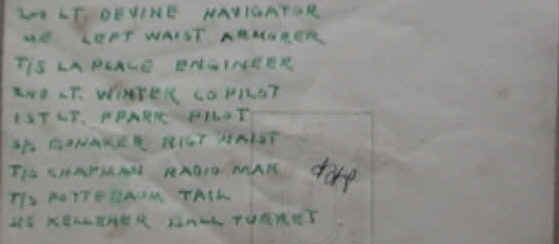 2ND LT. DEVINE NAVIGATOR
ME LEFT WAIST ARMORER
T/S LAPLACE ENGINEER
2ND LT. WINTER CO PILOT
1ST LT. PILOT
S/S BONAKER RIGT WAIST
T/S CHAPMAN RADIO MAN
T/S POTTEBAUM TAIL
KELLEHER BALL TURRET